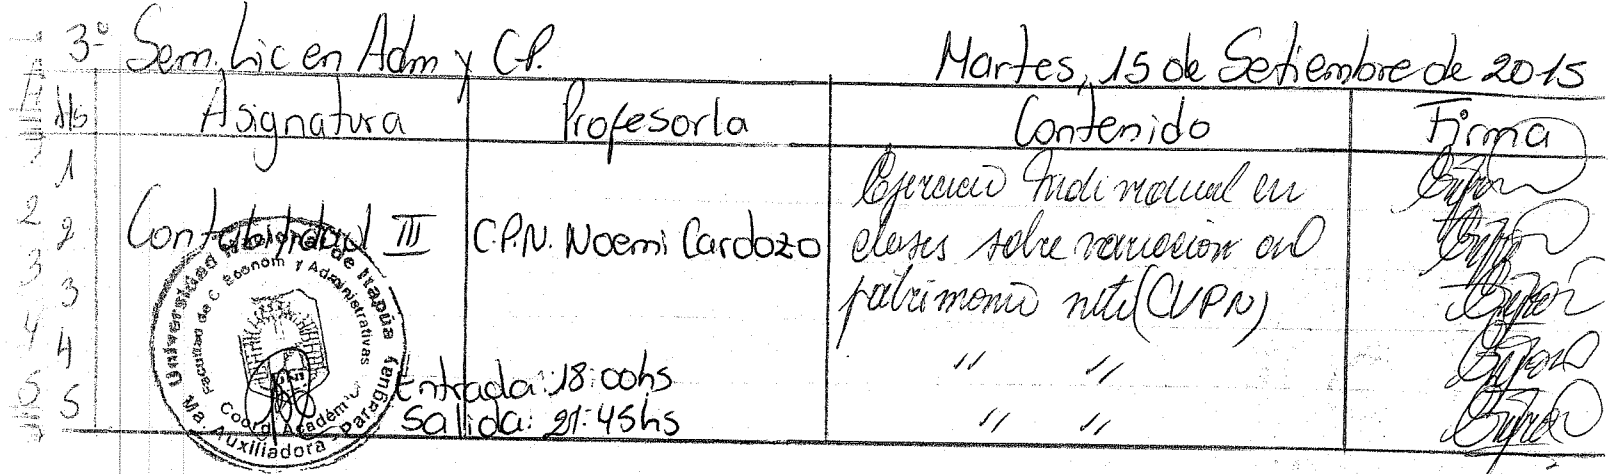 3º Sem. Lic en Adm y C.P. Martes, 15 de Setiembre de 2015
Hs Asignatura Profesor/a Contenido Firma
1 Ejercicio Individual en
2 Contabilidad III C.P.N. Noemi Cardozo clases sobre variacion del
3 patrimonio neto (CVPN)
4 " "
Entrada: 18:00hs
5 Salida: 21:45hs " "
Universidad Nacional de Itapúa
Facultad de C. Econom y Administrativas
UNI
Coord. Académic
Ma. Auxiliadora - Paraguay
2
3
4
5